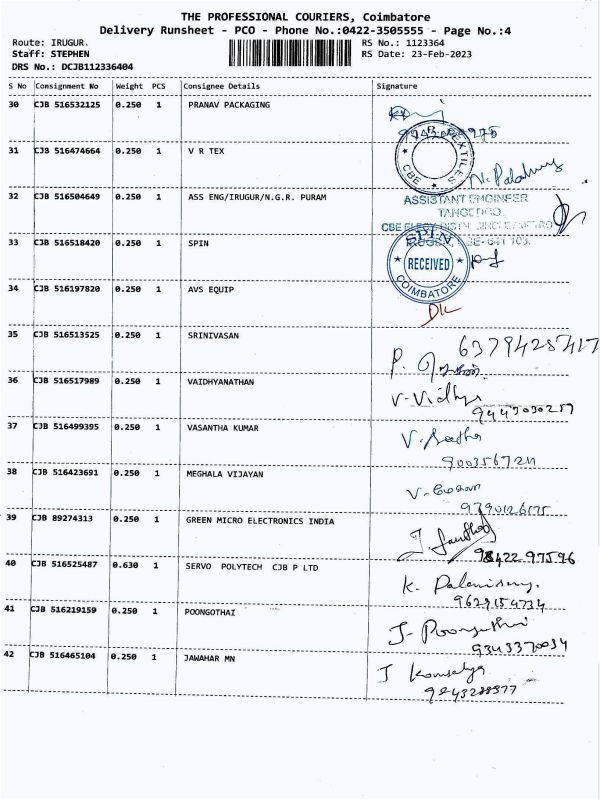 THE PROFESSIONAL COURIERS, Coimbatore
Delivery Runsheet - PCO - Phone No.:0422-3505555 - Page No.:4
Route: IRUGUR. RS No.: 1123364
Staff: STEPHEN RS Date: 23-Feb-2023
DRS No.: DCJB112336404
S No Consignment No Weight PCS Consignee Details Signature
30 CJB 516532125 0.250 1 PRANAV PACKAGING
31 CJB 516474664 0.250 1 V R TEX
TEXTILES CBE
32 CJB 516504649 0.250 1 ASS ENG/IRUGUR/N.G.R. PURAM ASSISTANT ENGINEER
33 CJB 516518420 0.250 1 SPIN SPIN RECEIVED COIMBATORE
34 CJB 516197820 0.250 1 AVS EQUIP
35 CJB 516513525 0.250 1 SRINIVASAN 6379428417
36 CJB 516517989 0.250 1 VAIDHYANATHAN V-Vidhya
37 CJB 516499395 0.250 1 VASANTHA KUMAR
38 CJB 516423691 0.250 1 MEGHALA VIJAYAN
9790126175
39 CJB 89274313 0.250 1 GREEN MICRO ELECTRONICS INDIA
40 CJB 516525487 0.630 1 SERVO POLYTECH CJB P LTD
9629154734
41 CJB 516219159 0.250 1 POONGOTHAI
9343370034
42 CJB 516465104 0.250 1 JAWAHAR MN J Kousalya